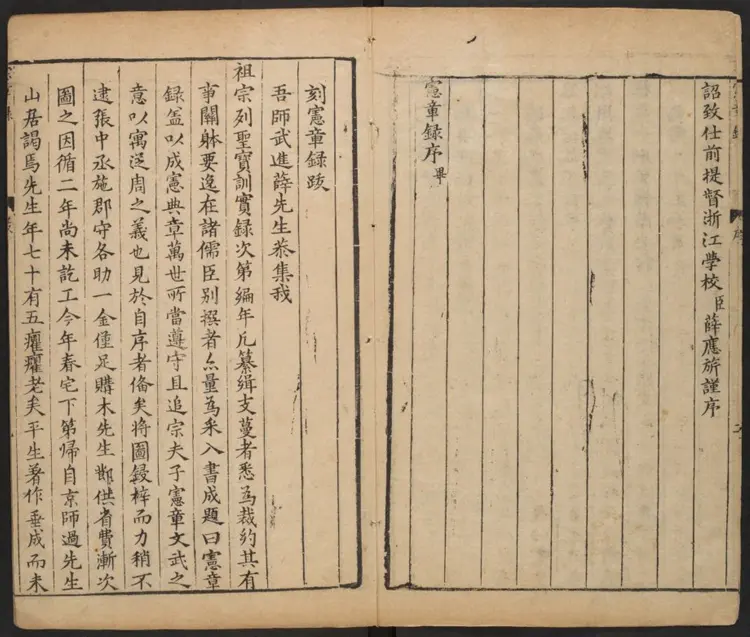 詔致仕前提督浙江學校臣薛應旂謹序
憲章錄序畢
刻憲章録跋
吾師武進薛先生恭集我
祖宗列聖寶訓實録次第編年凡纂緝支蔓者悉為裁約其有
事關躰要逸在諸儒臣别撰者亦量為采入書成題曰憲章
録盖以成憲典章萬世所當遵守且追宗夫子憲章文武之
意以寓從周之義也見於自序者俻矣將圖鋟梓而力稍不
逮張中丞施郡守各助一金僅足購木先生斵供省費漸次
圖之因循二年尚未訖工今年春宅下第歸自京師過先生
山居謁焉先生年七十有五癯癯老矣平生著作垂成而未